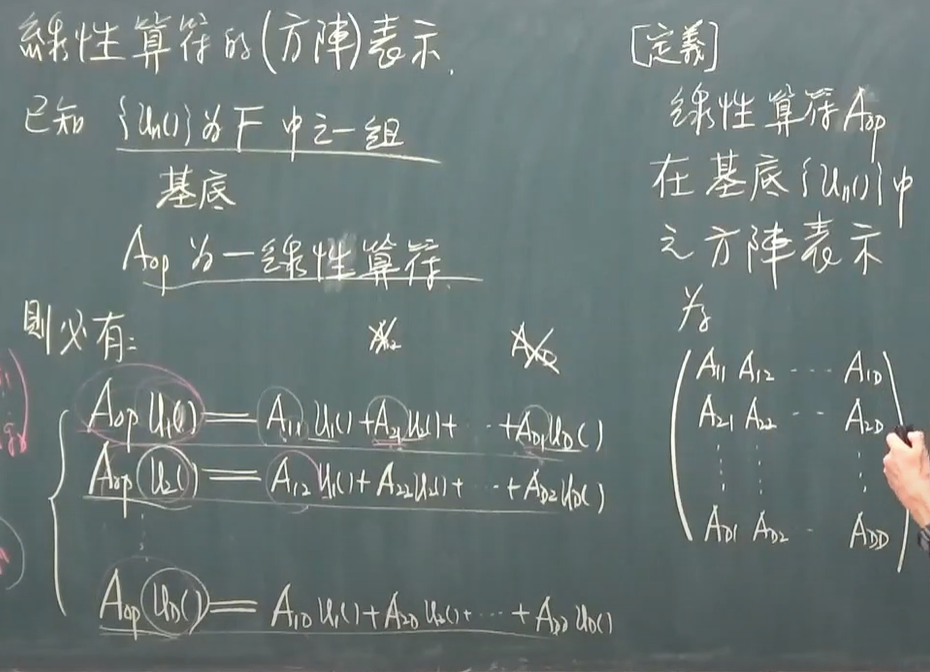 線性算符的(方陣)表示.
已知 {Un()}為 F 中之一組
基底
Aop 為一線性算符.
則必有:
Aop U1() = A11 U1() + A21 U2() + ⋯ + AD1 UD()
Aop U2() = A12 U1() + A22 U2() + ⋯ + AD2 UD()
⋮
Aop UD() = A1D U1() + A2D U2() + ⋯ + ADD UD()
[定義]
線性算符 Aop
在基底{Un()}中
之方陣表示
為
A11 A12 ⋯ A1D
A21 A22 ⋯ A2D
⋮ ⋮ ⋮
AD1 AD2 ⋯ ADD